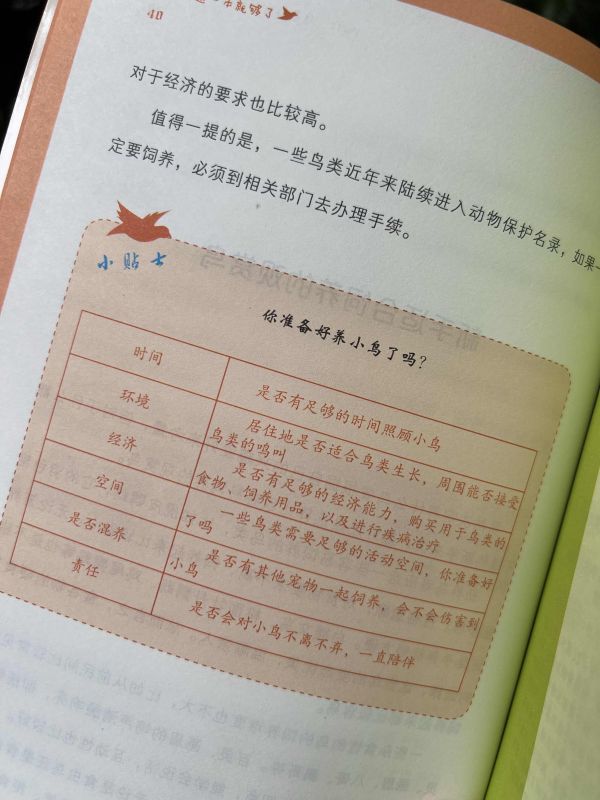 本就够了
40
对于经济的要求也比较高。
值得一提的是，一些鸟类近年来陆续进入动物保护名录，如果一
定要饲养，必须到相关部门去办理手续。
小贴士
你准备好养小鸟了吗？
时间
是否有足够的时间照顾小鸟
环境
居住地是否适合鸟类生长，周围能否接受
鸟类的鸣叫
经济
是否有足够的经济能力，购买用于鸟类的
食物、饲养用品，以及进行疾病治疗
空间
一些鸟类需要足够的活动空间，你准备好
了吗
是否混养
是否有其他宠物一起饲养，会不会伤害到
小鸟
责任
是否会对小鸟不离不弃，一直陪伴